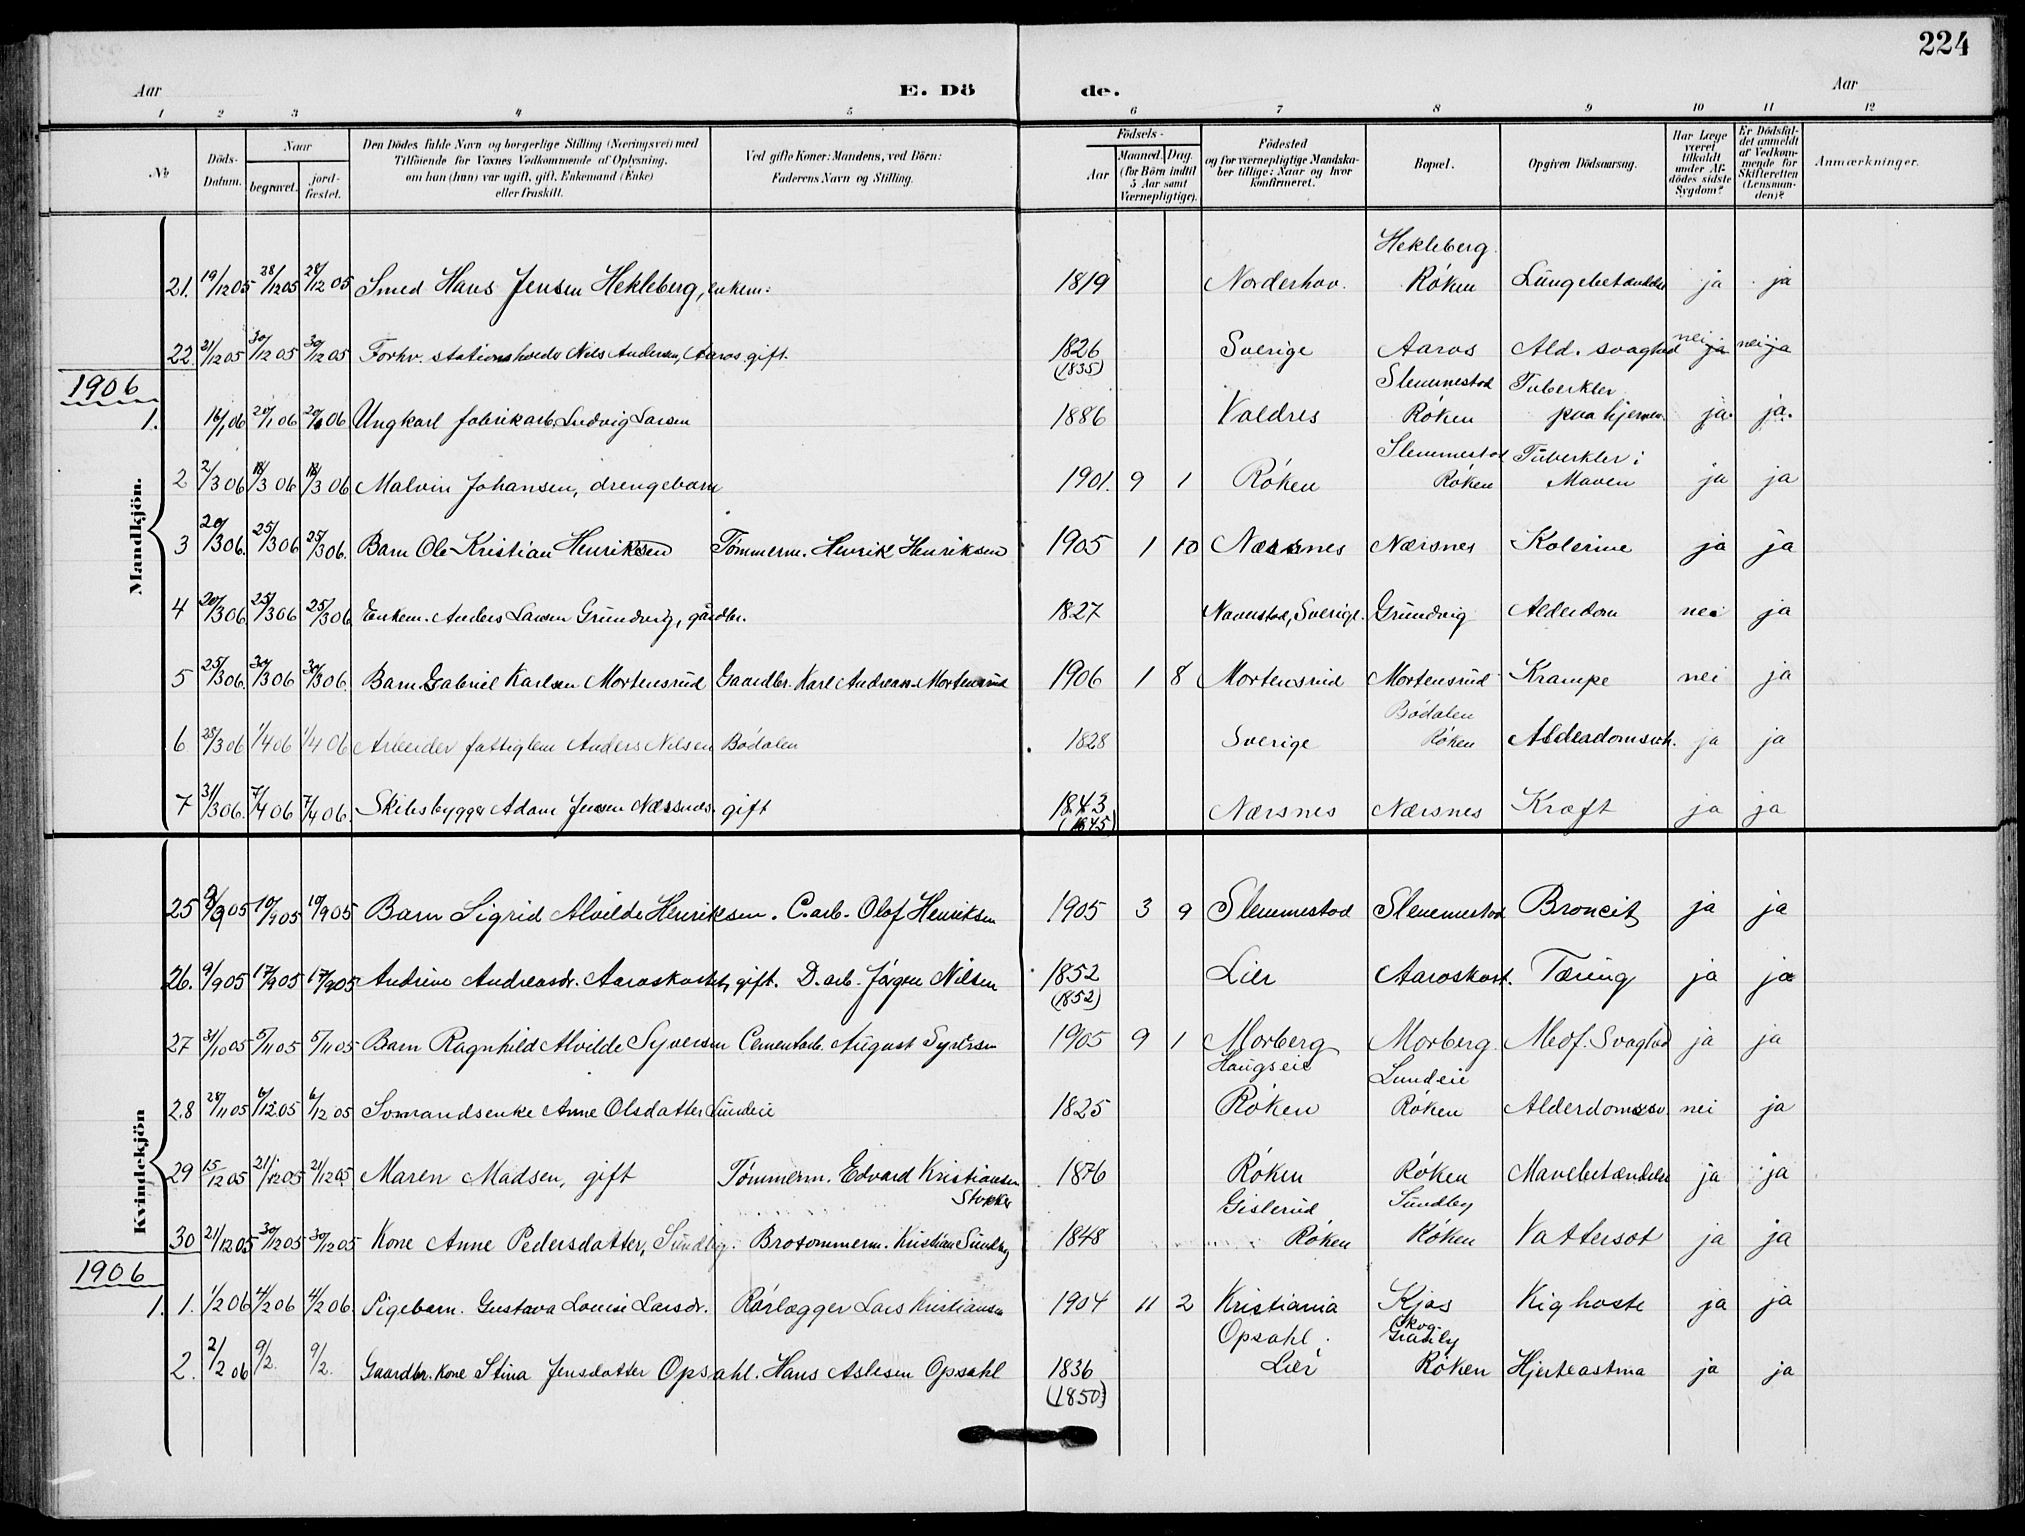 224
Aar E. Dö de. Aar
1 2 3 4 5 6 7 8 9 10 11 12
No Döds-Datum. Naar begravet. jord-fæstet. Den Dödes fulde Navn og borgerlige Stilling (Næringsvei) med Tilföiende for Voxnes Vedkommende af Oplysning, om han (hun) var ugift, gift, Enkemand (Enke) eller fraskilt. Ved gifte Koner: Mandens, ved Börn: Faderens Navn og Stilling. Födsels- Aar Maaned. Dag. (for Börn indtil 5 Aar samt Værnepligtige). Födested og for værnepligtige Mandskaber tillige: Naar og hvor konfirmeret. Bopæl. Opgiven Dödsaarsag. Har Læge været tilkaldt under Afdödes sidste Sygdom? Er Dödsfaldet anmeldt af Vedkommende for Skifteretten (Lensmanden)? Anmærkninger.
Mandkjön.
Hekleberg
21. 19/12 05 28/12 05 28/12 05 Smed Hans Jensen Hekleberg, enkem: 1819 Norderhov. Røken Lungebetændelse ja ja
22. 21/12 05 30/12 05 30/12 05 Forhv. stationsholder Nils Andersen, Aaros. gift. 1826 Sverige Aaros Ald. svaghed nei ja nei ja
(1835)
1906
Slemmestad Tuberkler
1. 16/1 06 20/1 06 20/1 06 Ungkarl fabrikarb. Ludvig Larsen 1886 Valdres Røken paa hjernen. ja. ja.
Slemmestad Tuberkler i
2 2/3 06 18/3 06 18/3 06 Malvin Johansen, drengebarn 1901. 9 1 Røken Røken Maven ja ja
3 20/3 06. 25/3 06 25/3 06. Barn Ole Kristian Henriksen Tømmerm. Henrik Henriksen 1905 1 10 Nærsnes Nærsnes Kolerine ja ja
4 20/3 06 25/3 06 25/3 06 Enkem. Anders Larsen Grundvig, gårdbr. 1827 Navestad, Sverige. Grundvig Alderdom nei ja
5 25/3 06. 30/3 06 30/3 06. Barn Gabriel Karlsen Mortensrud Gaardbr. Karl Andreas. Mortensrud 1906 1 8 Mortensrud Mortensrud Krampe nei ja
Bødalen
6 25/3 06 1/4 06 1/4 06 Arbeider fattiglem Anders Nilsen Bødalen 1828 Sverige Røken Alderdomsvh. ja ja
7 31/3 06. 7/4 06 7/4 06. Skibsbygger Adam Jensen Nærsnes. gift 1843 Nærsnes Nærsnes Kræft ja ja
(1845)
Kvindekjön
25 3/9 05 10/9 05 10/9 05 Barn Sigrid Alvilde Henriksen. C.arb. Olof Henriksen 1905 3 9 Slemmestad Slemmestad Broncit ja ja
26. 9/9 05 17/9 05 17/9 05 Andrine Andreasdr. Aaroskortet, gift. D.arb. Jørgen Nilsen 1852 Lier Aaroskort. Tæring ja ja
(1852)
27 31/10 05 5/11 05 5/11 05 Barn Ragnhild Alvilde Syversen Cementarb. August Syversen 1905 9 1 Morberg Morberg Medf. Svaghed ja ja
Haugseie Lundeie
28 28/11 05 6/12 05 6/12 05 Sømandsenke Anne Olsdatter Lundeie 1825 Røken Røken Alderdomssv. nei ja
29 15/12 05 21/12 05 21/12 05. Maren Madsen, gift Tømmerm. Edvard Kristiansen 1876 Røken Røken Mavebetændelse ja ja
Stokker
Gislerud Sundby
30 21/12 05 30/12 05 30/12 05 Kone Anne Pedersdatter, Sundby. Brotømmerm. Kristian Sundby 1848 Røken Røken Vattersot ja ja
1906
1. 1. 1/2 06 4/2 06 4/2 06. Pigebarn. Gustava Louise Larsdr. Rørlægger Lars Kristiansen 1904 11 2 Kristiania Kjos Kighoste ja ja
Opsahl. Skog-
Granly
2. 2/2 06 9/2. 9/2. Gaardbr. kone Stina Jensdatter Opsahl. Hans Aslesen Opsahl 1836 Lier Røken Hjerteastma ja ja
(1850)